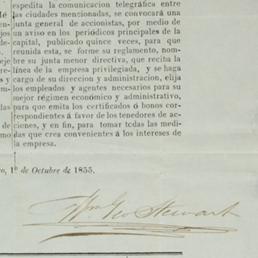 expedita la comunicacion telegráfica entre
las ciudades mencionadas, se convocará una
junta general de accionistas, por medio de
un aviso en los periódicos principales de la
capital, publicado quince veces, para que
reunida esta, se forme su reglamento, nom-
bre su junta menor directiva, que recita la
línea de la empresa privilegiada, y se haga
cargo de su direccion y administracion, elija
los empleados y agentes necesarios para su
mejor régimen económico y administrativo,
para que emita los certificados ó bonos cor-
respondientes á favor de los tenedores de ac-
ciones, y en fin, para tomar todas las medi-
das que crea convenientes á los intereses de
la empresa.
1º de Octubre de 1855.
Wm Geo Stewart